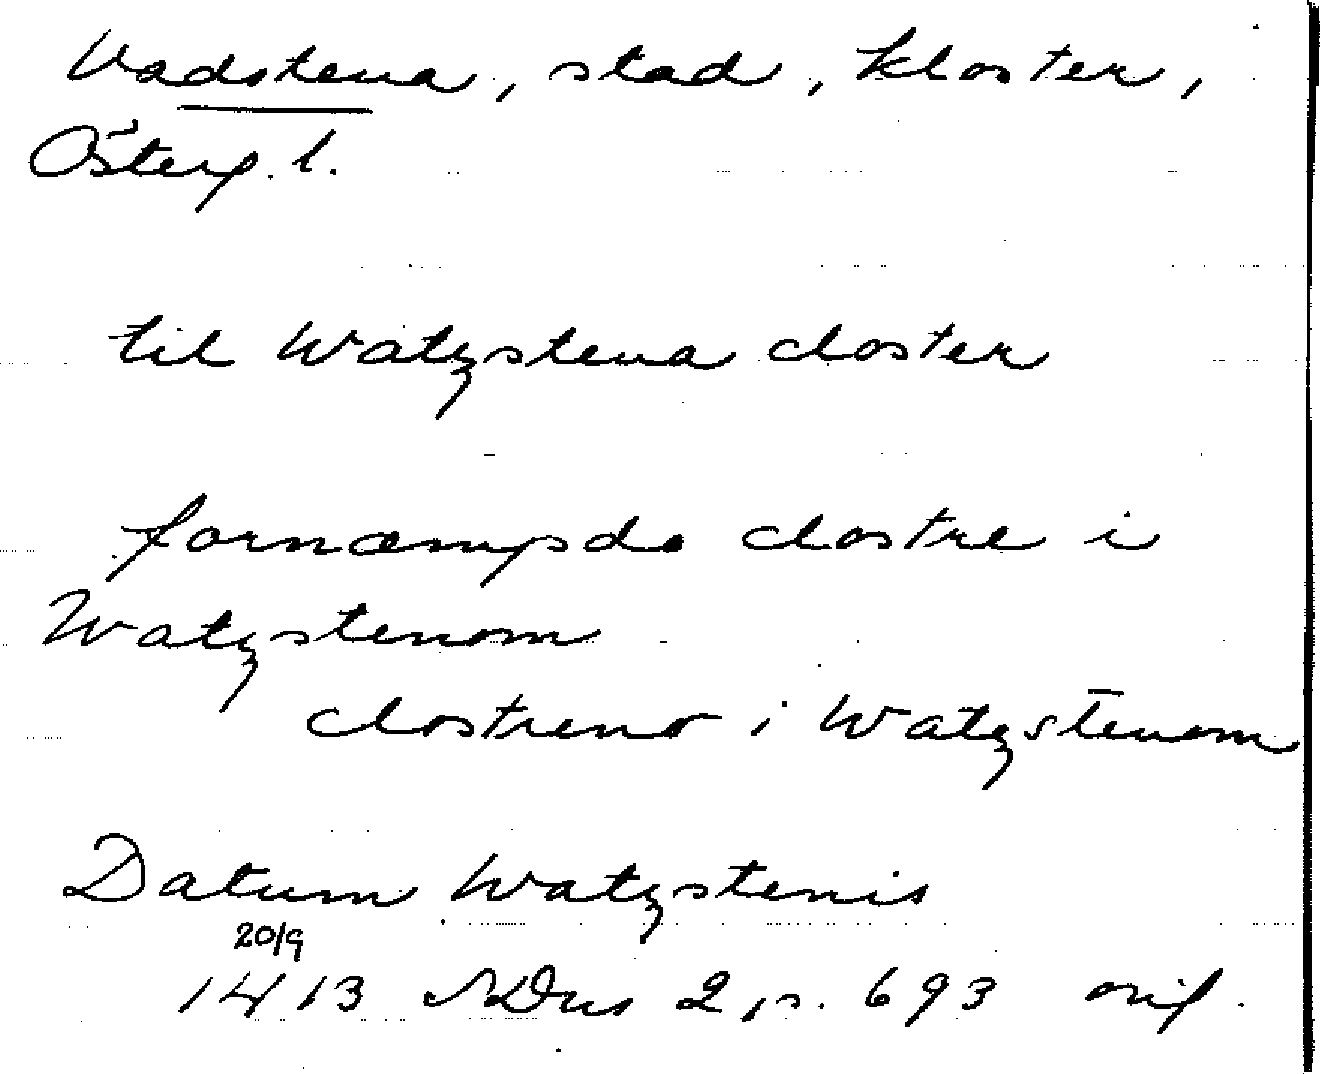 Vadstena, stad, kloster,
Österg. l.
til Watzstena closter
fornæmpda clostre i
Watzstenom
clostreno i Watzstenom
Datum Watzstenis
20/9
1413 SDns 2 s. 693 orig.